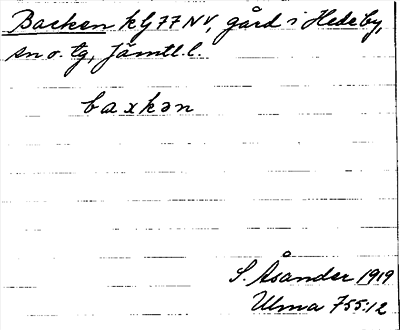 Backen kbj 77 NV, gård i Hedeby,
sn o. tg, Jämtl. l.
baxkən
S. Åsander 1919
Ulma 755:12